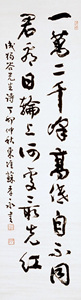 一萬二千峰高低自不同
君看日輪上何處最先紅
成獨谷先生詩丁卯仲秋